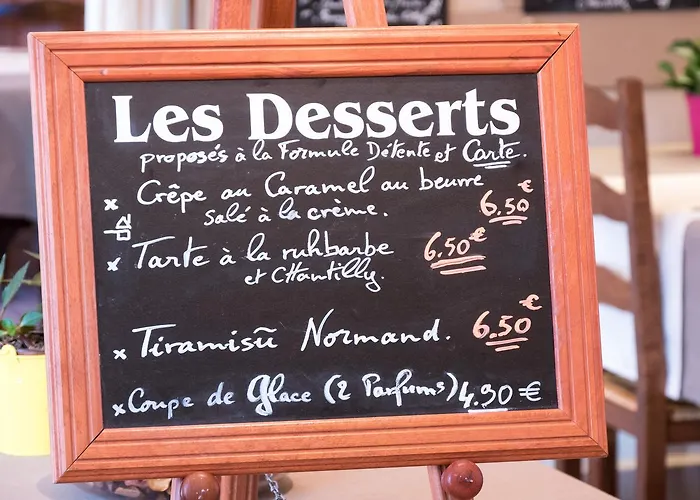 Les Desserts
proposés à la Formule Détente et Carte.
x Crêpe au Caramel au beurre
salé à la crème. 6,50 €
x Tarte à la ruhbarbe 6,50 €
et CHantilly.
x Tiramisū Normand. 6.50 €
x Coupe de Glace (2 Parfums) 4.90 €